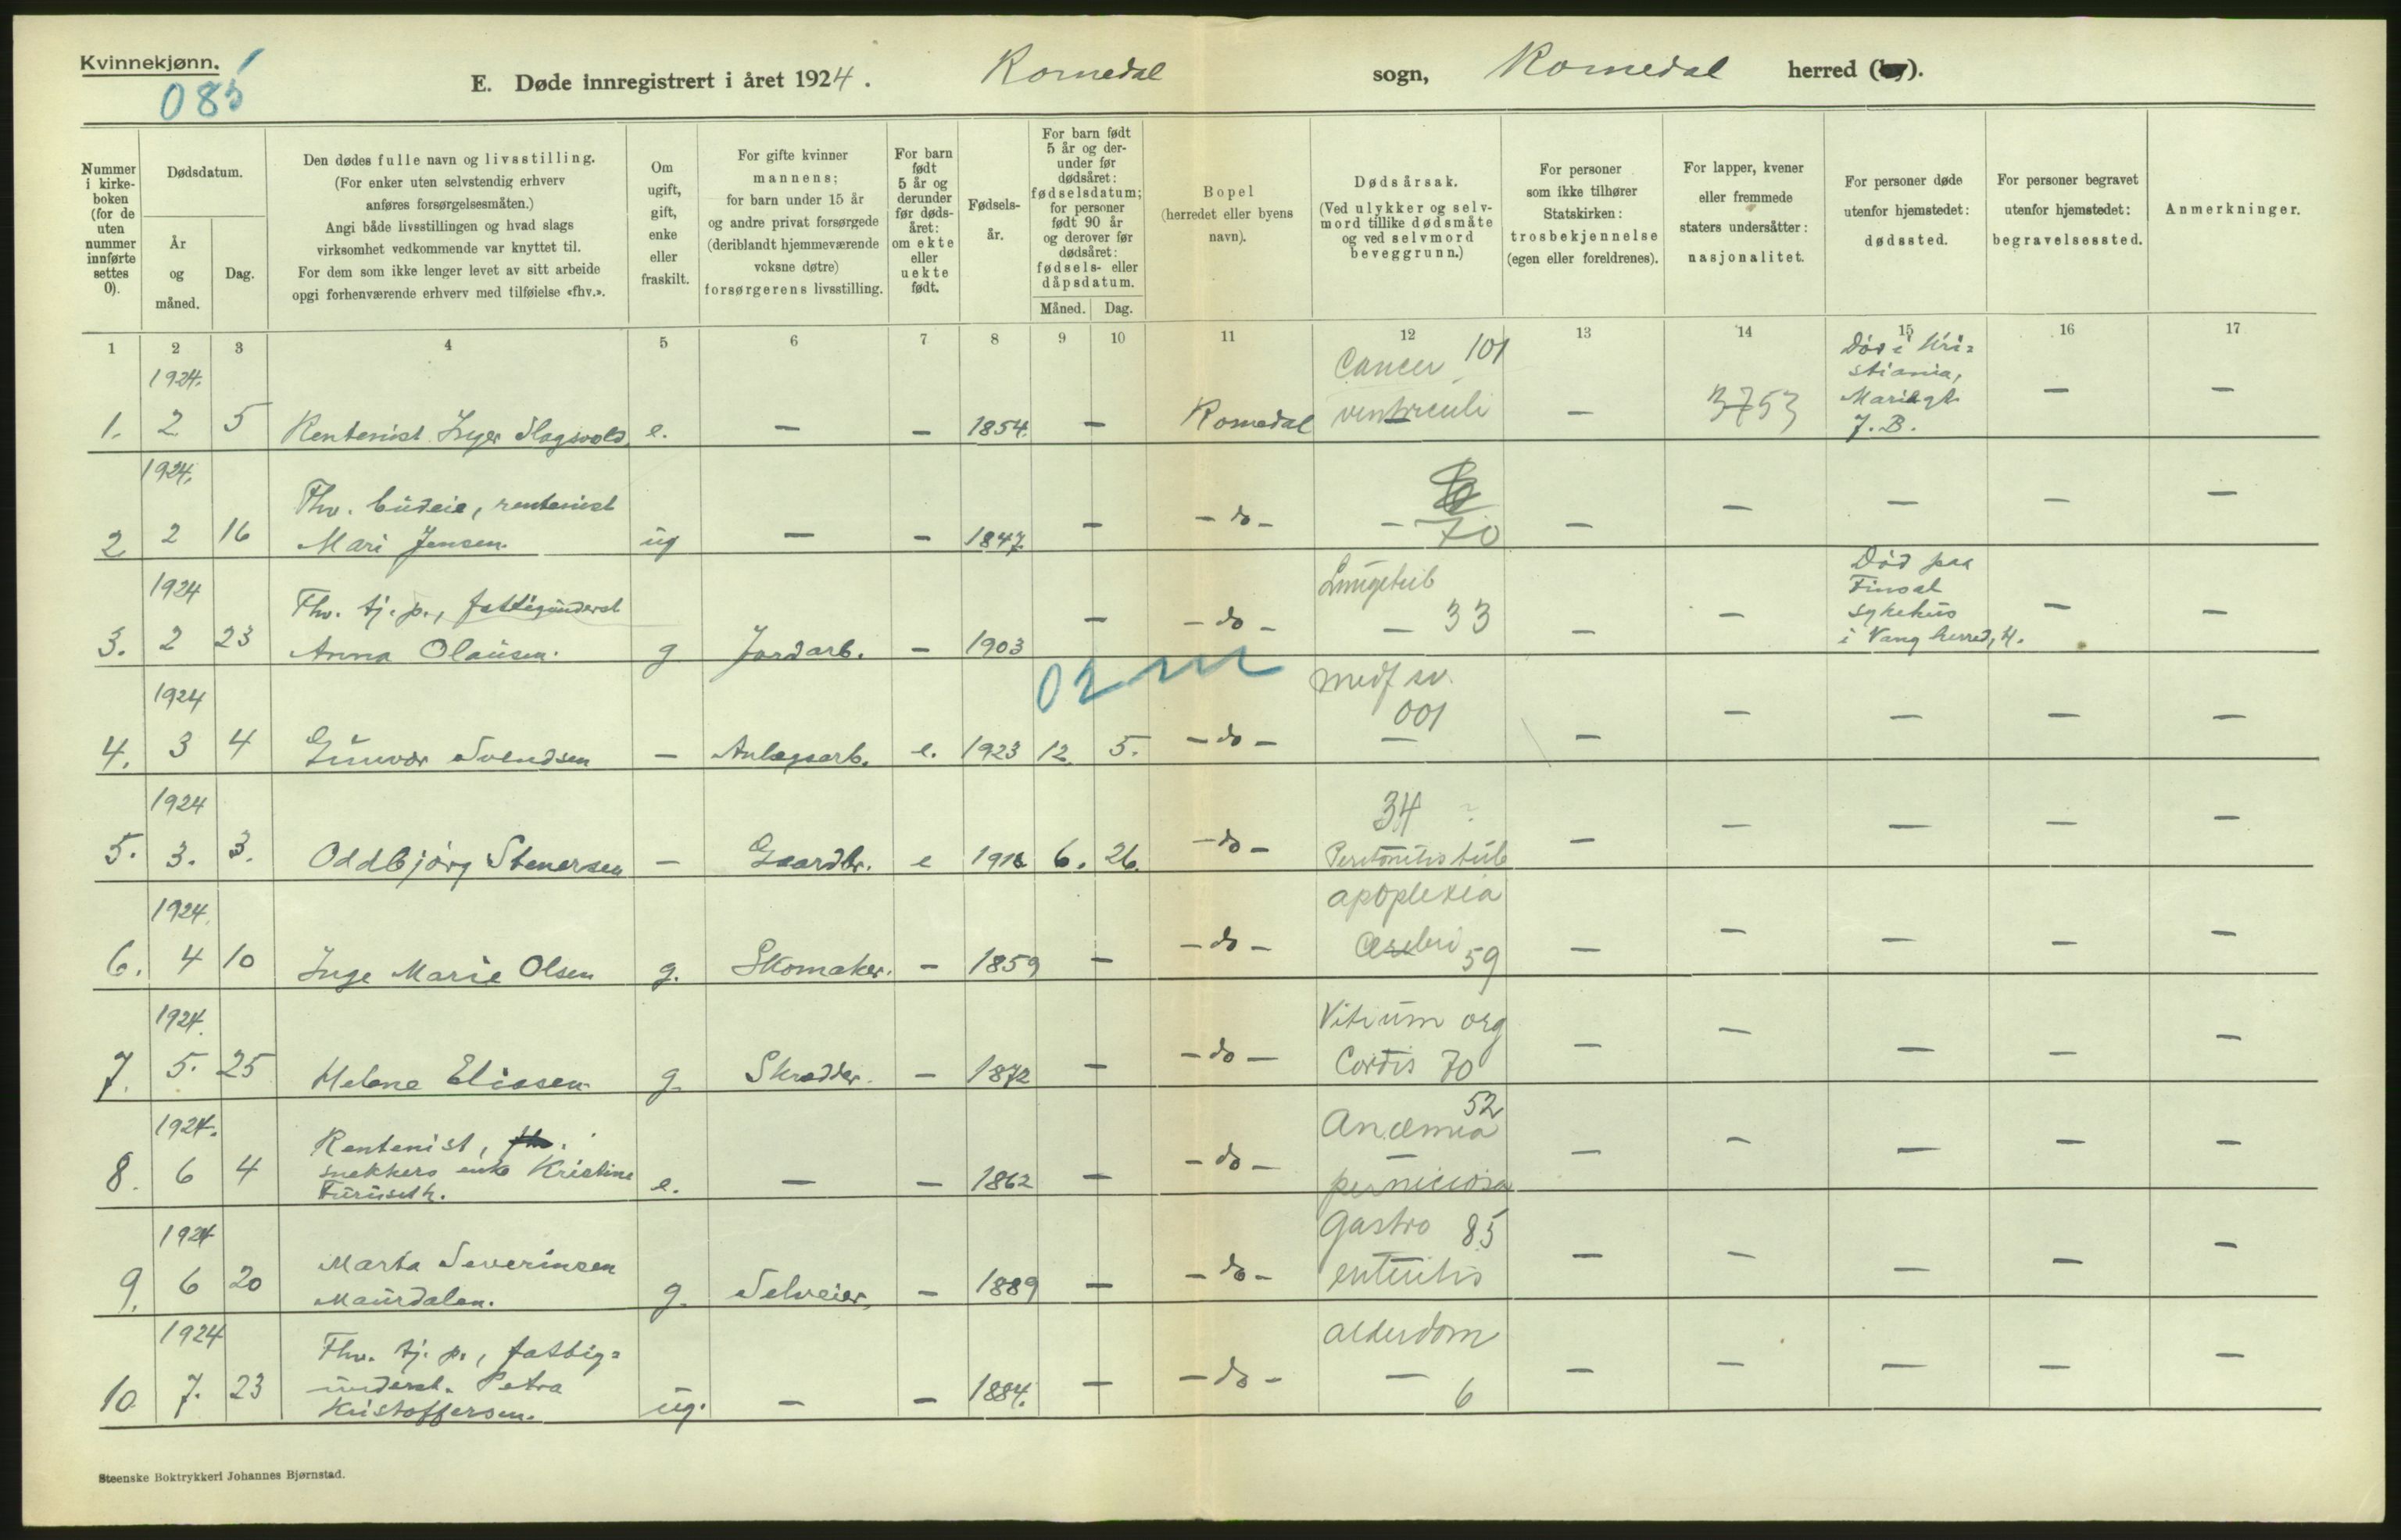 Kvinnekjønn.
085
E. Døde innregistrert i året 1924. Romedal sogn, Romedal herred (by).
Nummer i kirkeboken (for de uten nummer innførte settes 0).
Dødsdatum.
År og måned.
Dag.
Den dødes fulle navn og livsstilling.
(For enker uten selvstendig erhverv
anføres forsørgelsesmåten.)
Angi både livsstillingen og hvad slags
virksomhet vedkommende var knyttet til.
For dem som ikke lenger levet av sitt arbeide
opgi forhenværende erhverv med tilføielse «fhv.».
Om ugift, gift, enke eller fraskilt.
For gifte kvinner
mannens;
for barn under 15 år
og andre privat forsørgede
(deriblandt hjemmeværende
voksne døtre)
forsørgerens livsstilling.
For barn født 5 år og derunder før dødsåret: om ekte eller uekte født.
Fødselsår.
For barn født 5 år og derunder før dødsåret: fødselsdatum; for personer født 90 år og derover før dødsåret: fødsels- eller dåpsdatum.
Måned. Dag.
Bopel
(herredet eller byens
navn).
Dødsårsak.
(Ved ulykker og selvmord tillike dødsmåte og ved selvmord beveggrunn.)
For personer
som ikke tilhører
Statskirken:
trosbekjennelse
(egen eller foreldrenes).
For lapper, kvener
eller fremmede
staters undersåtter:
nasjonalitet.
For personer døde
utenfor hjemstedet:
dødssted.
For personer begravet
utenfor hjemstedet:
begravelsessted.
Anmerkninger.
1 2 3 4 5 6 7 8 9 10 11 12 13 14 15 16 17
1924.
1. 2 5 Rentenist Inger Hagsvold e. — — 1854. — Romedal Cancer 101 ventriculi — 3753 Død i Kristiania, 7. B. — —
1924.
2 2 16 Fhv. budeie, rentenist Mari Jensen ug — — 1847. — - do - - 70 — — — — —
1924
3. 2 23 Fhv. tj. p., fattigunderst Anna Olausen. g Jordarb. — 1903 — - do - Lungetub — 33 — — Død paa Finsal sykehus i Vang herred, H. — —
02
1924
4. 3 4 Gunvor Svendsen — Anlegsarb. e. 1923 12. 5. - do - medf sv. 001 — — — — — —
1924
5. 3. 3. Oddbjørg Stenersen — Gaardbr. e 1918 6. 26. - do - 34 Peritonitis tub — — — — —
1924.
6. 4 10 Inge Marie Olsen g. Skomaker. — 1859 — - do - apoplexia cerebri 59 — — — — —
1924.
7. 5. 25 Helene Eliasen g. Skredder. — 1872 — - do - Vitium org Cordis 70 — — — — —
1924.
8. 6 4 Rentenist, fhv. snekkers enke Kristine Furuseth. e. — — 1862 — - do - Anæmia 52 perniciosa — — — — —
1924
9. 6 20 Marta Severinsen Maurdalen. g. Selveier, — 1889 — - do - Gastro 85 enteritis — — — — —
1924
10 7. 23 Fhv. tj. p., fattigunderst. Petra Kristoffersen. ug. — — 1884. — - do - alderdom — 6 — — — — —
Steenske Boktrykkeri Johannes Bjørnstad.